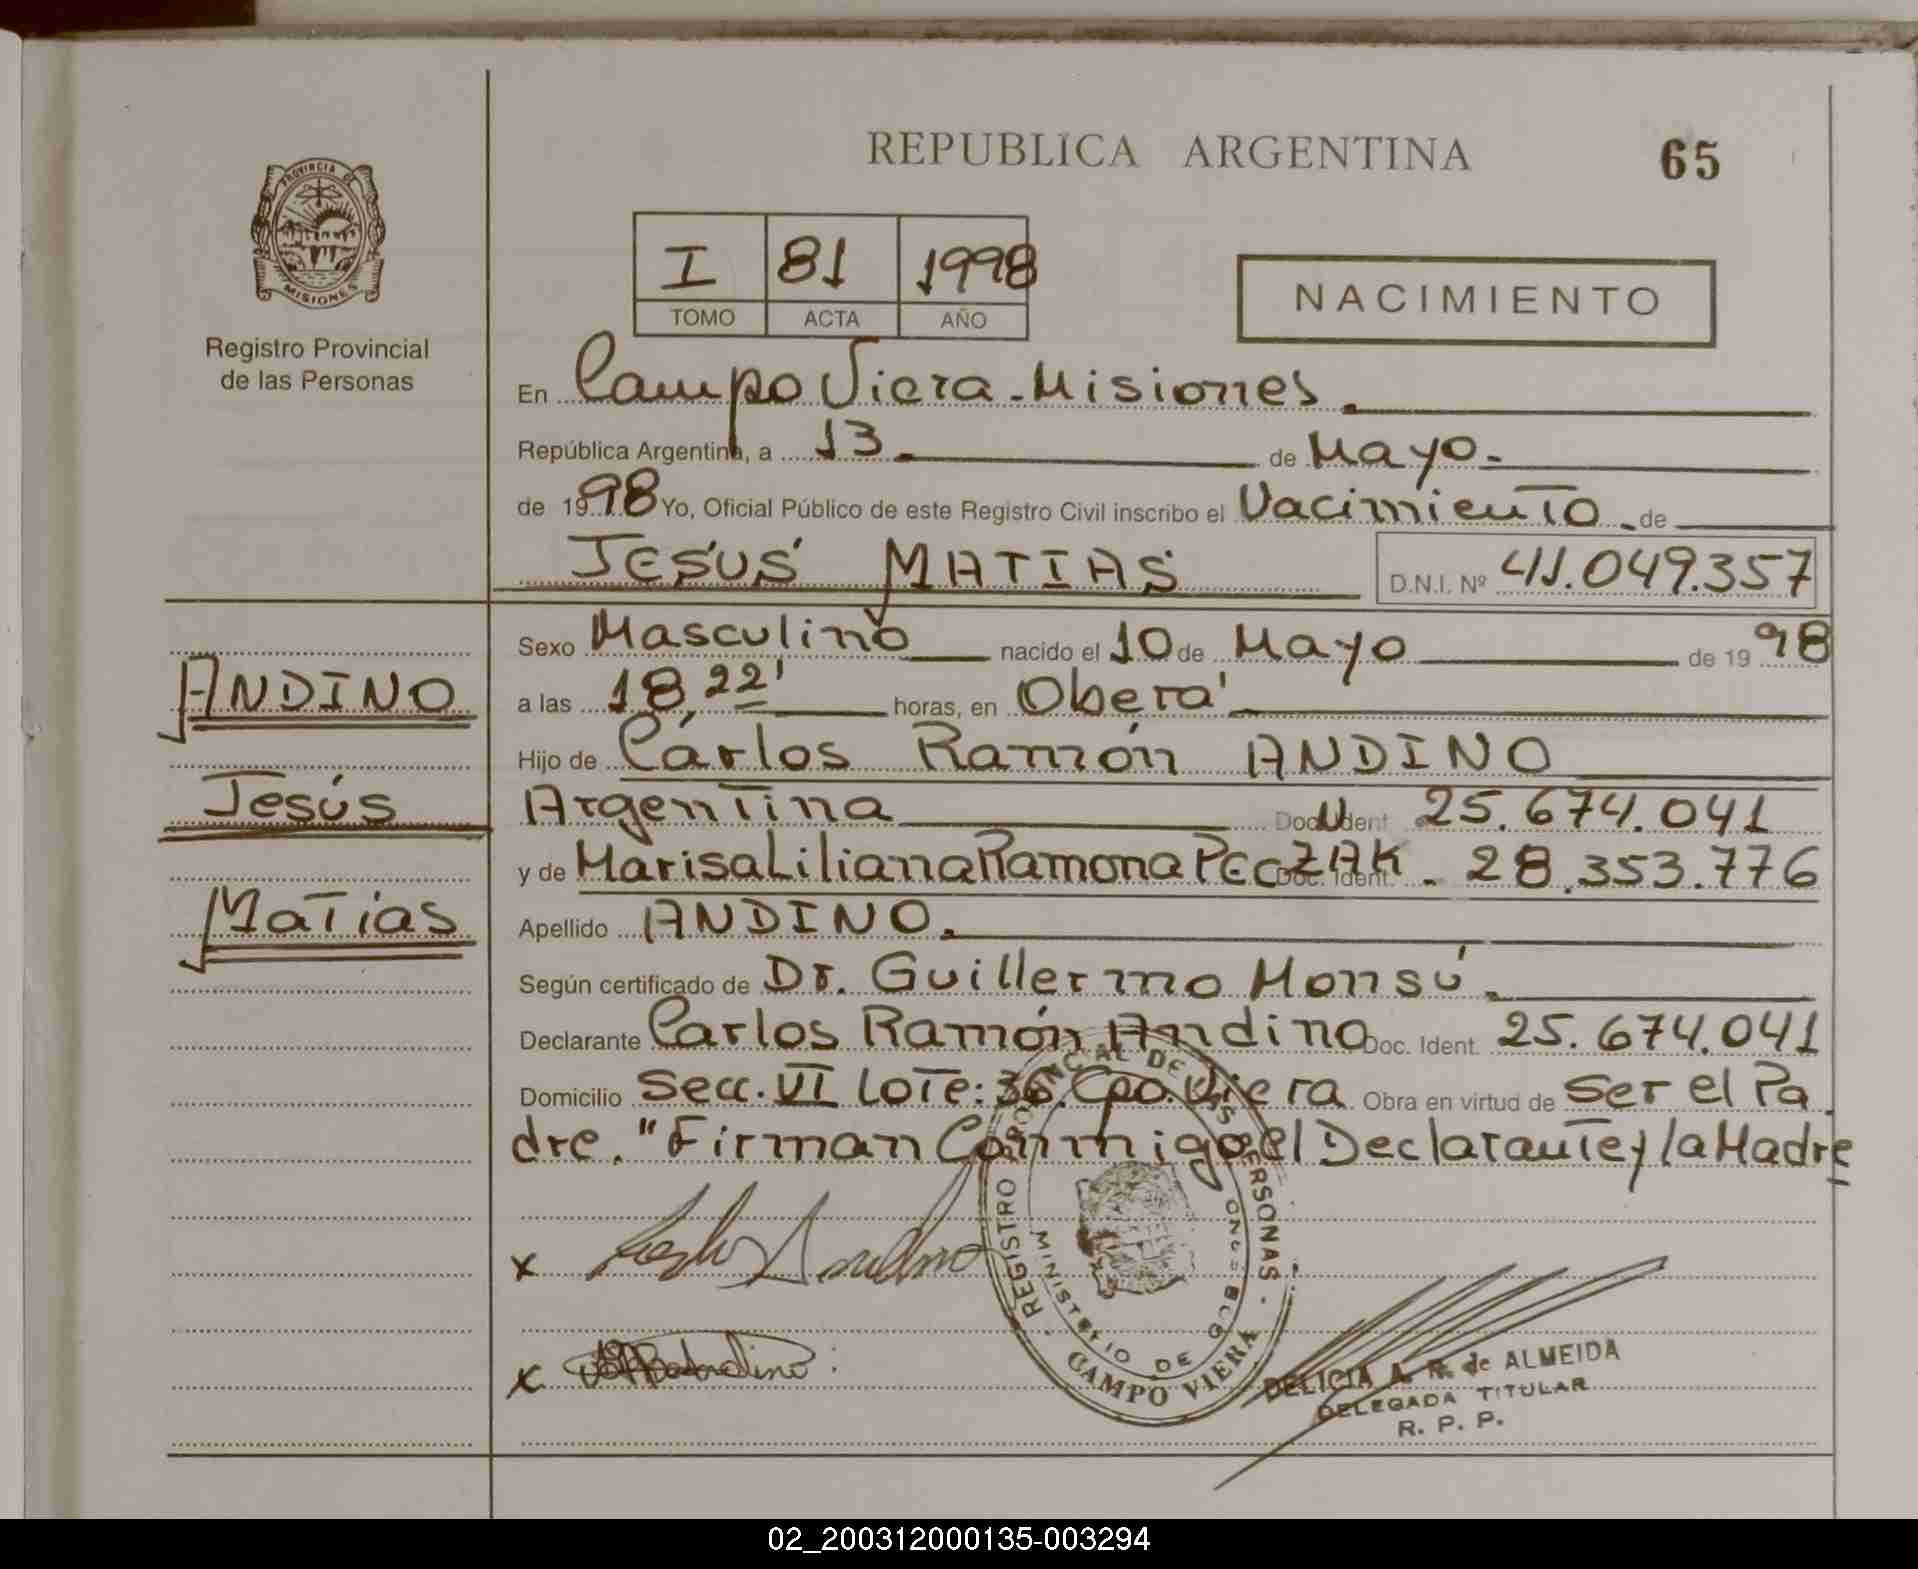 REPUBLICA ARGENTINA
65
PROVINCIA DE
MISIONES
Registro Provincial
de las Personas
I 81 1998
TOMO ACTA AÑO
NACIMIENTO
En Campo Viera - Misiones.
República Argentina, a 13 de Mayo.
de 1998 Yo, Oficial Público de este Registro Civil inscribo el Nacimiento de
JESÚS MATIAS D.N.I. Nº 41.049.357
ANDINO
Jesús
Matias
Sexo Masculino nacido el 10 de Mayo de 1998
a las 18,22' horas, en Oberá
Hijo de Carlos Ramón ANDINO
Argentina Doc. Ident. 25.674.041
y de Marisa Liliana Ramona PECZAK Doc. Ident. 28.353.776
Apellido ANDINO.
Según certificado de Dr. Guillermo Monsú.
Declarante Carlos Ramón Andino Doc. Ident. 25.674.041
Domicilio Secc. VI Lote: 36. Cpo. Viera Obra en virtud de Ser el Pa
dre. "Firman Conmigo el Declarante y la Madre
x
REGISTRO PROVINCIAL DE LAS PERSONAS
MINISTERIO DE
CAMPO VIERA
x
DELICIA A. R. de ALMEIDA
DELEGADA TITULAR
R. P. P.
02_200312000135-003294